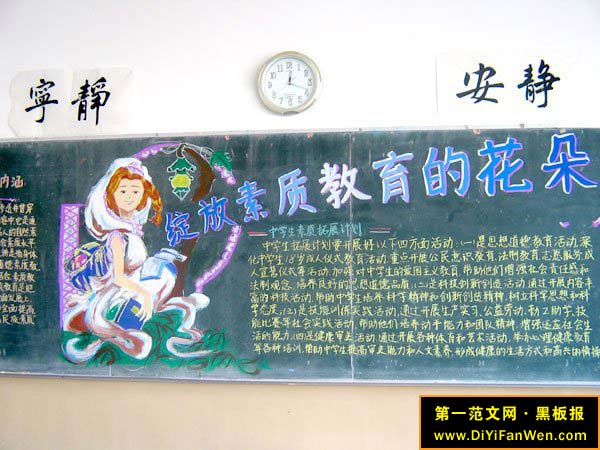 寧靜
安静
内涵
绽放素质教育的花朵
中学生素质拓展计划
中学生拓展计划要开展好以下四方面活动:(一)是思想道德教育活动,深
化中学生18岁成人仪式教育活动,重点开展公民意识教育,法制教育志愿服务成
人宣誓仪式等活动,加强对中学生的爱国主义教育,帮助他们增强社会责任感和
法制观念,培养良好的思想道德品质,(二)是科技创新创造活动,通过开展内容丰
富的科技活动,帮助中学生培养科学精神和创新创造精神,树立科学思想和科
学态度,(三)是技能训练实践活动,通过开展生产实习,公益劳动,勤工助学,技
能比赛等社会实践活动,帮助他们培养动手能力和团队精神,增强适应社会生
活的能力,四是健康审美活动,通过开展各种体育和艺术活动,举办心理健康教育
等各种培训,帮助中学生提高审美能力和人文素养,形成健康的生活方式和高尚的情操
第一范文网·黑板报
www.DiYiFanWen.com